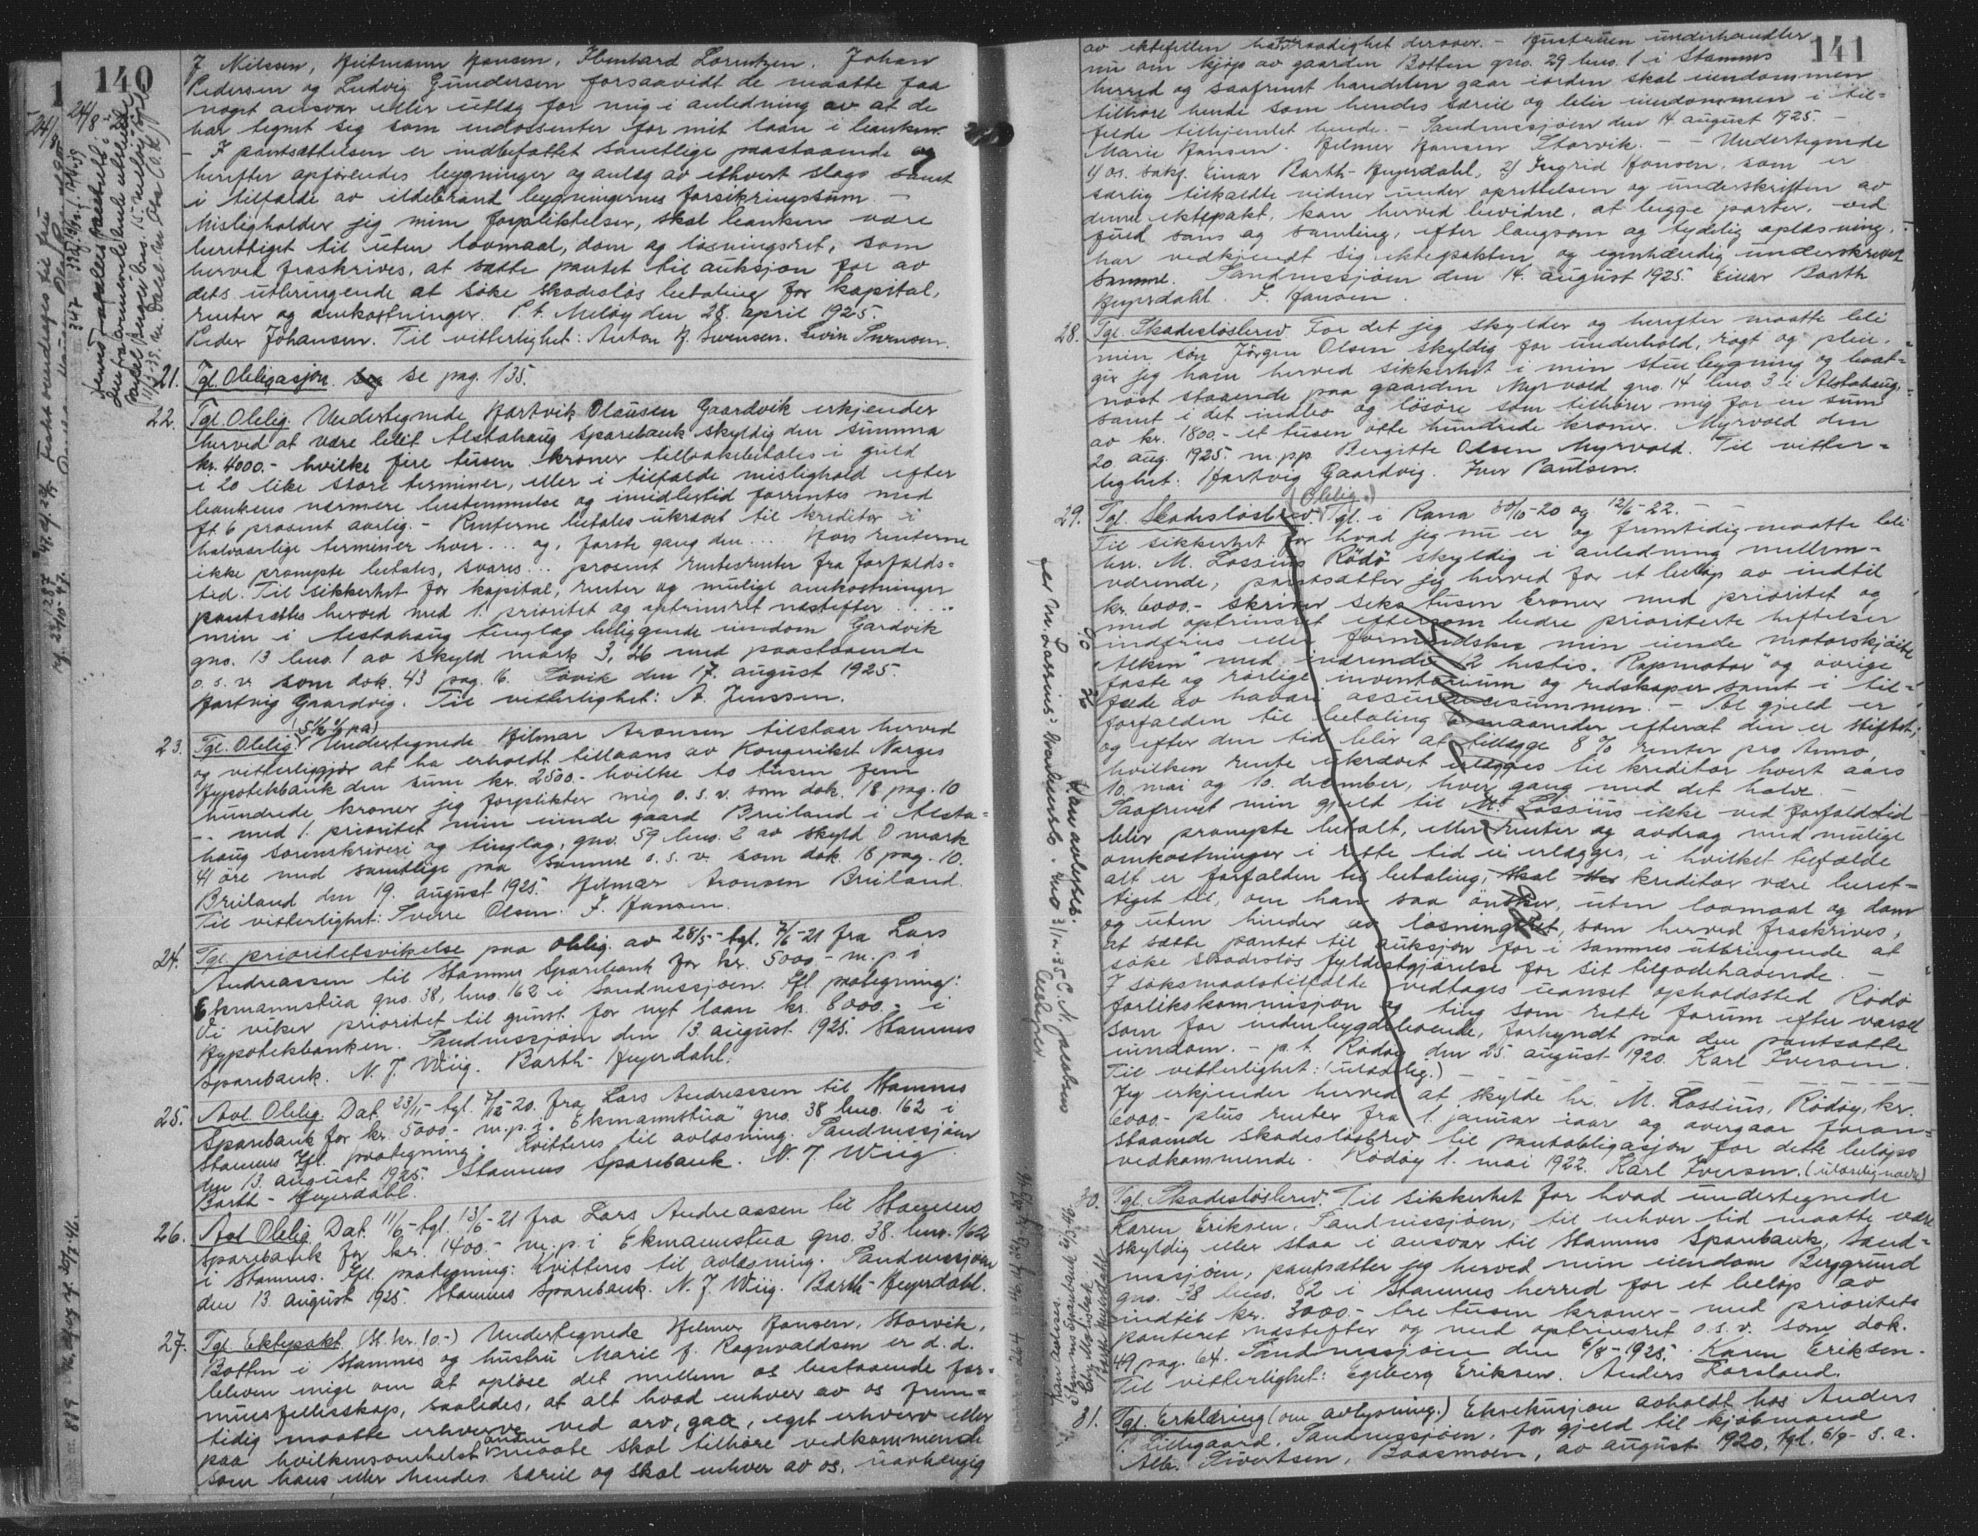 140
J. Nilssen, Heitmann Hansen, Edvard Lorntzen. Johan
Pedersen og Ludvig Gundersen forsaavidt de maatte faa
noget ansvar eller utlæg for mig i anledning av at de
har tegnet sig som endossenter for mit laan i banken.
- I pantsættelsen er indbefattet samtlige paastaaende og
herefter opförendes bygninger og anlæg av ethvert slags samt
i tilfælde av ildebrand bygningernes forsikringssum -
Misligholder jeg mine forpliktelser, skal banken være
berettiget til uten lovmaal, dom og løsningsret, som
herved fraskrives, at sætte pantet til auksjon for av
dets utbringende at söke skadeslös betaling for kapital,
renter og omkostninger. P.t. Meløy den 28. april 1925.
Peder Johansen. Til vitterlighet: Anton H. Swensen. Livin Swensen.
21. Tgl. Obligasjon. se pag. 135.
22. Tgl. Oblig. Undertegnede Hartvik Olausen Gaardvik erkjender
herved at være blit Alstahaug Sparebank skyldig den summa
kr. 4000.- hvilke fire tusen kroner tilbakebetales i guld
i 20 like store terminer, eller i tilfælde mislighold efter
bankens nærmere bestemmelse og imidlertid forrentes med
ft 6 prosent aarlig. - Renterne betales ukrævet til kreditor i
halvaarlige terminer hver ... og, förste gang den ... Hvis renterne
ikke prompte betales, svares ... prosent rentesrenter fra forfalds-
tid. Til sikkerhet for kapital, renter og mulige omkostninger
pantsættes herved med 1. prioritet og optrinsret næstefter .....
min i Alstahaug tinglag beliggende eiendom Gardvik
gno. 13 bno. 1 av skyld mark 3,26 med paastaaende
o.s.v. som dok. 43 pag. 6. Søvik den 17. august 1925.
Hartvig Gaardvig. Til vitterlighet: A. Jenssen.
23. Tgl. Oblig. Undertegnede Hilmar Aronsen tilstaar herved
og vitterliggjør at ha erholdt tillaans av Kongeriket Norges
Hypotekbank den sum kr. 2500.- hvilke to tusen fem
hundrede kroner jeg forplikter mig o.s.v. som dok. 18 pag. 10
-- med 1. prioritet min eiende gaard Breiland i Alsta-
haug sorenskriveri og tinglag, gno. 59 bno. 2 av skyld 0 mark
41 öre med samtlige paa samme o.s.v. som dok. 18 pag. 10.
Breiland den 19. august 1925. Hilmar Aronsen Breiland.
Til vitterlighet: Sverre Olsen. F. Hansen.
24. Tgl. prioritetsvikelse paa oblig. av 28/5- tgl. 7/6-21 fra Lars
Andreassen til Stamnes Sparebank for kr. 5000.- m.p. i
Ekmannstua gno. 38, bno. 162 i Sandnessjøen. Ifl. paategning:
Vi viker prioritet til gunst for nyt laan kr. 6000.- i
Hypotekbanken. Sandnessjøen den 13. august 1925. Stamnes
Sparebank. N. J. Wiig. Barth-Heyerdahl.
25. Avl. Oblig. Dat. 23/11- tgl. 7/12-20. fra Lars Andreassen til Stamnes
Sparebank for kr. 5000.- m.p. i. "Ekmannstua" gno. 38 bno. 162 i
Stamnes Ifl. paategning: Kvitteres til avløsning. Sandnessjøen
den 13. august 1925. Stamnes Sparebank. N. J. Wiig.
Barth-Heyerdahl.
26. Avl. Oblig. Dat. 11/6- tgl. 13/6-21 fra Lars Andreassen til Stamnes
Sparebank for kr. 1400.- m.p. i Ekmannstua gno. 38. bno. 162
i Stamnes. Ifl. paategning: Kvitteres til avløsning. Sandnessjøen
den 13. august 1925. Stamnes Sparebank. N. J. Wiig. Barth-Heyerdahl.
27. Tgl. Ektepakt (St. kr. 10.-) Undertegnede Hilmer Hansen, Storvik,
Botten i Stamnes og hustru Marie f. Ragnvaldsen er d.d.
bleven enige om at oplöse det mellem os bestaaende for-
muesfellesskap, saaledes, at alt hvad enhver av os frem-
tidig maatte erhverve ved arv, gave, eget erhverv eller
paa hvilkensomhelst anden maate skal tilhöre vedkommende
som hans eller hendes særeie og skal enhver av os, uavhængig
141
av ektefellen ha raadighet derover. - Hustruen underhandler
nu om kjöp av gaarden Botten gno. 29 bno. 1 i Stamnes
herred og saafremt handelen gaar iorden skal eiendommen
tilhöre hende som hendes særeie og blir eiendommen i til-
felde tilhjemlet hende. - Sandnessjøen den 14. august 1925. -
Marie Hansen. Hilmer Hansen Storvik. - - Undertegnede
1) os. sakf. Einar Barth-Heyerdahl, 2) Ingrid Hansen, som er
særlig tilkaldte vidner under oprettelsen og underskriften av
denne ektepakt, kan herved bevidne, at begge parter, ved
fuld sans og samling, efter langsom og tydelig oplæsning,
har vedkjendt sig ektepakten og egenhændig underskrevet
samme. Sandnessjøen den 14. august 1925. Einar Barth
Heyerdahl. I. Hansen.
28. Tgl. Skadeslösbrev. For det jeg skylder og herefter maatte bli
min sön Jörgen Olsen skyldig for underhold, rögt og pleie.
gir jeg ham herved sikkerhet i min stuebygning og baat-
nöst staaende paa gaarden Myrvold gno. 14 bno. 3 i Alstahaug,
samt i det indbo og lösöre som tilhører mig for en sum
av kr. 1800.- et tusen otte hundrede kroner. Myrvold den
20. aug. 1925. m.p.p. Bergitte Olsen Myrvold. Til vitter-
lighet: Hartvig Gaardvig. Iver Paulsen.
(Oblig.)
29. Tgl. Skadeslösbrev. Tgl. i Rana 30/10-20 og 12/6-22. -
Til sikkerhet for hvad jeg nu er og fremtidig maatte bli
hr. M. Lossius Rödö skyldig i anledning mellem-
værende, pantsætter jeg herved for et belöp av indtil
kr. 6000.- skriver seks tusen kroner med prioritet og
med optrinsret eftersom bedre prioriterte heftelser
indfries eller formindskes min eiende motorskjöite
"Alken" med inderende 12 hestes "Rapmotor" og övrige
faste og rörlige inventarium og redskaper samt i til-
fælde av havari assurancesummen. - Al gjeld er
forfalden til betaling 6 maaneder efterat den er stiftet,
og efter den tid blir at tillægge 8 % renter pro Anno,
hvilken rente ukrævet erlægges til kreditor hvert aars
10. mai og 10. december, hver gang med det halve -
Saafremt min gjeld til M. Lossius ikke ved forfaldstid
blir prompte betalt, eller renter og avdrag med mulige
omkostninger i rette tid ei erlægges, i hvilket tilfælde
alt er forfalden til betaling, skal kreditor være beret-
tiget til, om han saa önsker, uten lovmaal og dom
og uten hinder av løsningsret, som herved fraskrives,
at sætte pantet til auksjon for i sammes utbringende at
söke skadeslös fyldestgjörelse for sit tilgodehavende. -
I söksmaalstilfælde vedtages uanset opholdssted Rödö
forlikskommisjon og ting som rette forum efter varsel
som for indenbygdsboende, forkyndt paa den pantsatte
eiendom. - p.t. Rödöy den 25. august 1920. Karl Iversen.
Til vitterlighet: (ulæselig.)
Jeg erkjender herved at skylde hr. M. Lossius, Rödöy, kr.
6000.- plus renter fra 1. januar iaar og overgaar foran-
staaende skadeslösbrev til pantobligasjon for dette belöps
vedkommende. Rödöy 1. mai 1922. Karl Iversen. (ulæselig navn)
30. Tgl. Skadeslösbrev. Til sikkerhet for hvad undertegnede
Karen Eriksen, Sandnessjøen, til enhver tid maatte være
skyldig eller staa i ansvar til Stamnes Sparebank, Sand-
nessjøen, pantsætter jeg herved min eiendom Berggrund
gno. 38 bno. 82 i Stamnes herred for et belöp av
indtil kr. 3000.- tre tusen kroner - med prioritets
panteret næstefter og med optrinsret o.s.v. som dok.
49 pag. 64. Sandnessjøen den 6/8-1925. Karen Eriksen.
Til vitterlighet: Egeberg Eriksen. Anders Forsland.
31. Tgl. Erklæring (om avlysning.) Eksekusjon avholdt hos Anders
P. Lillegaard, Sandnessjøen, for gjeld til kjöbmand
Alb. Sivertsen, Baasmoen, av august 1920, tgl. 6/9- s.a.